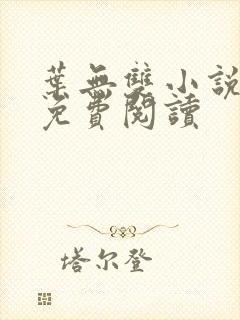 葉無雙小說
免費閱讀
塔尔登